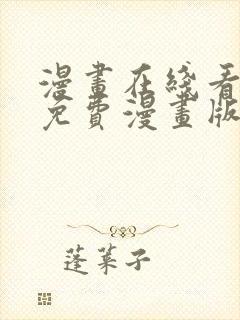 漫畫在綫看
免費漫畫版
蓬萊子